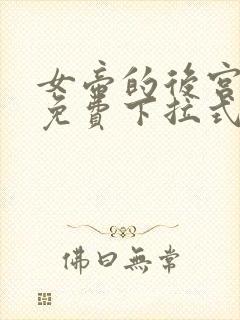 女帝的後宮
免費下拉式
佛曰無常